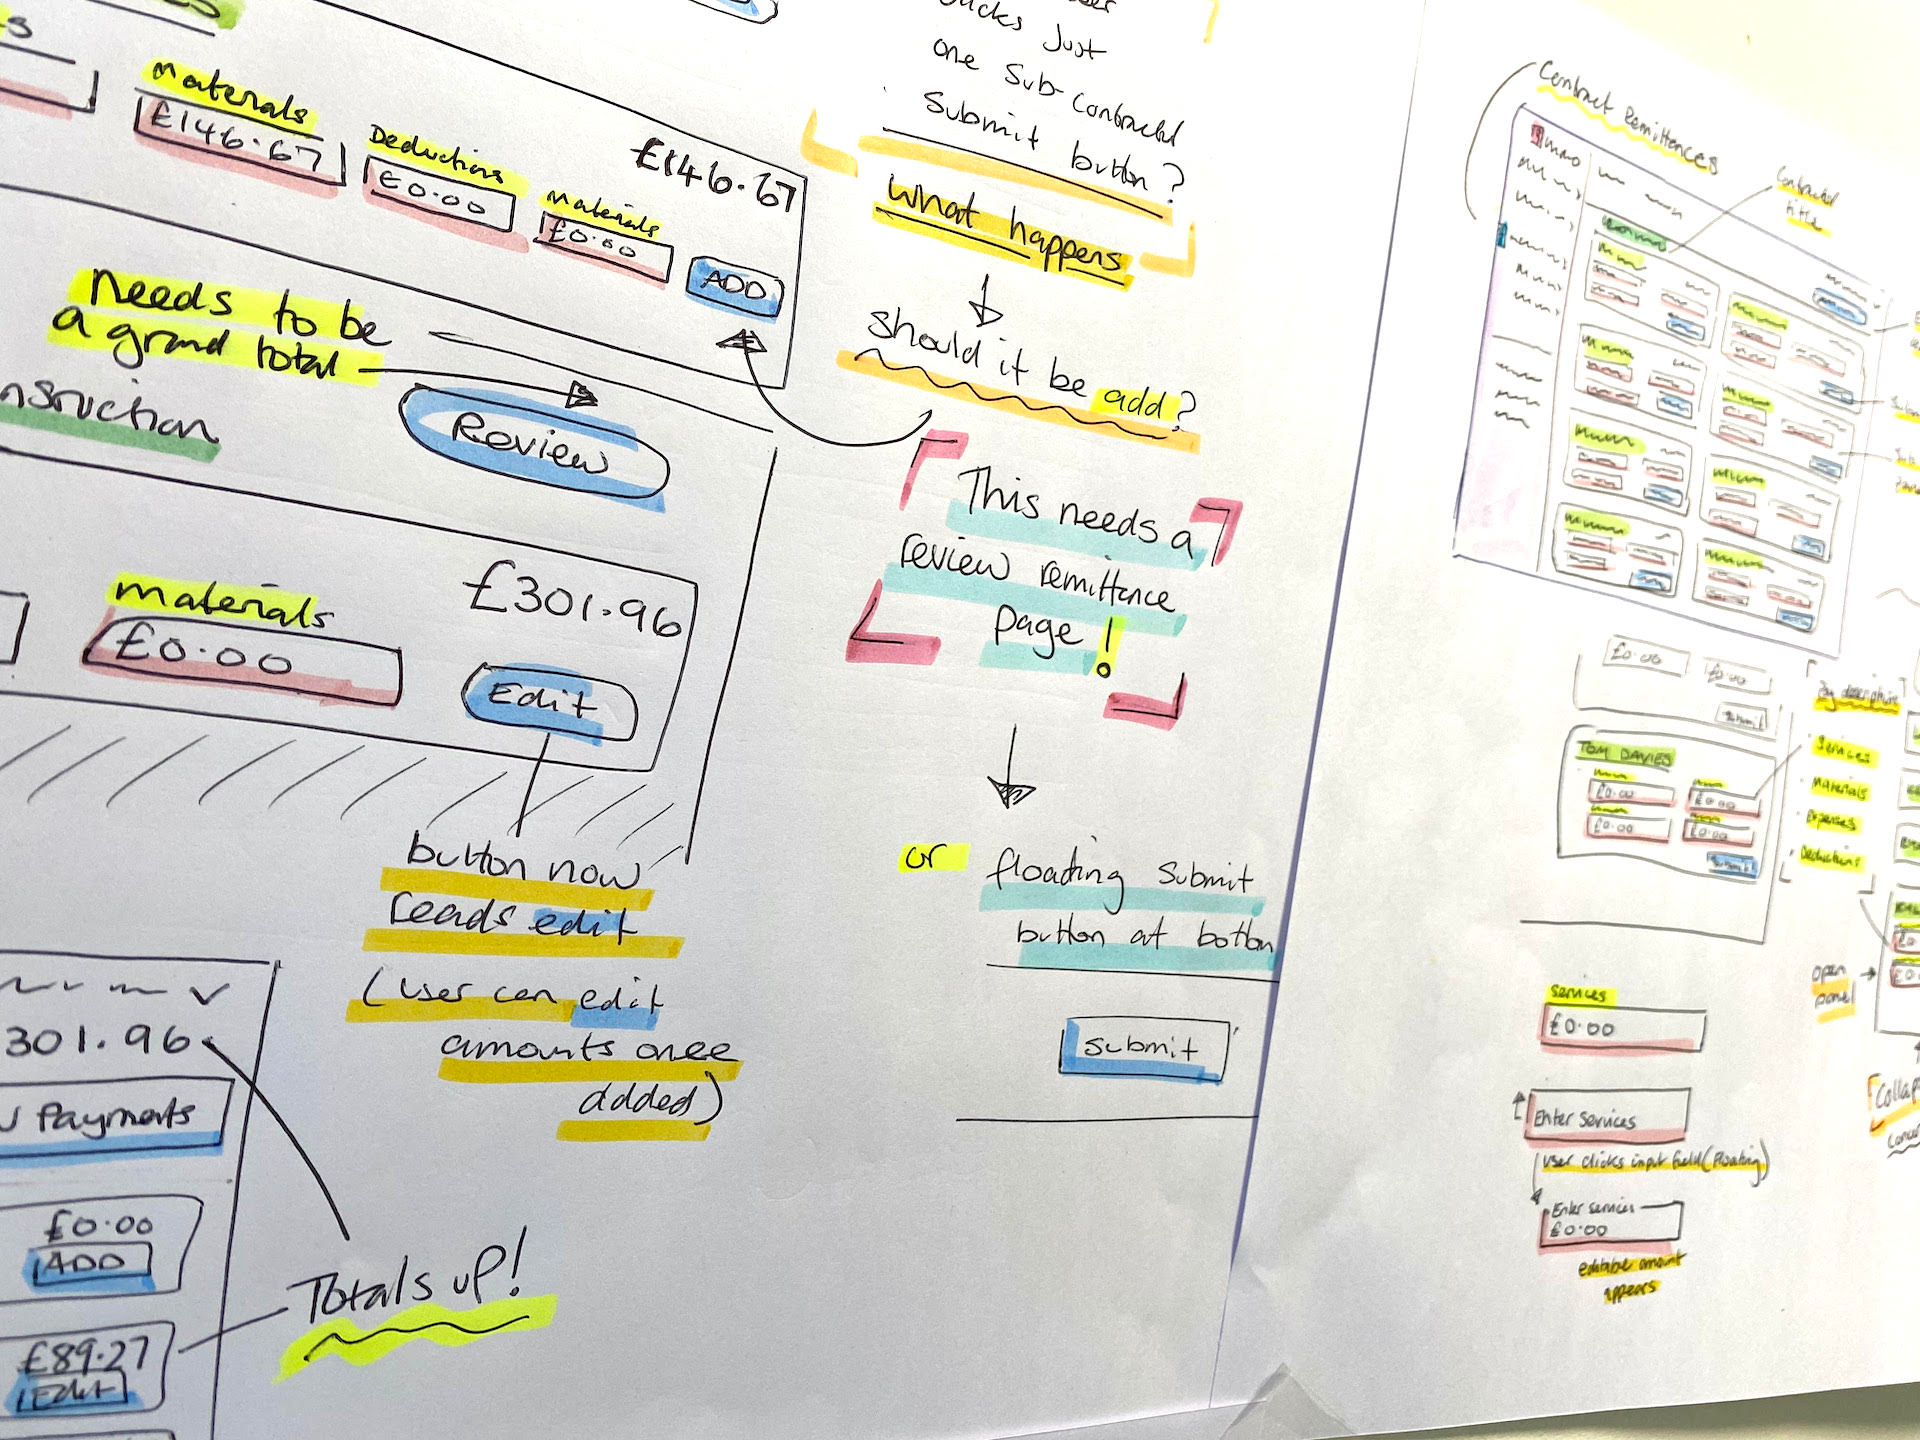 Materials
£146.67
Deductions
£0.00
Materials
£0.00
£146.67
ADD
Needs to be
a grand total
nsruction
Review
materials
£0.00
£301.96
Edit
button now
reads edit
(user can edit
amounts once
added)
301.96
Payments
£0.00
ADD
£89.27
Edit
Totals up!
clicks just
one sub-contractor
submit button?
what happens
should it be add?
This needs a
review remittence
page!
or floating submit
button at bottom
submit
Contract Remittences
Contractor
title
£0.00
£0.00
submit
TOM DAVIES
£0.00
£0.00
£0.00
£0.00
Submit
Pay description
Services
Materials
Expenses
Deductions
open
panel
services
£0.00
Enter services
user clicks input field (floating)
Enter services
£0.00
editable amount
appears